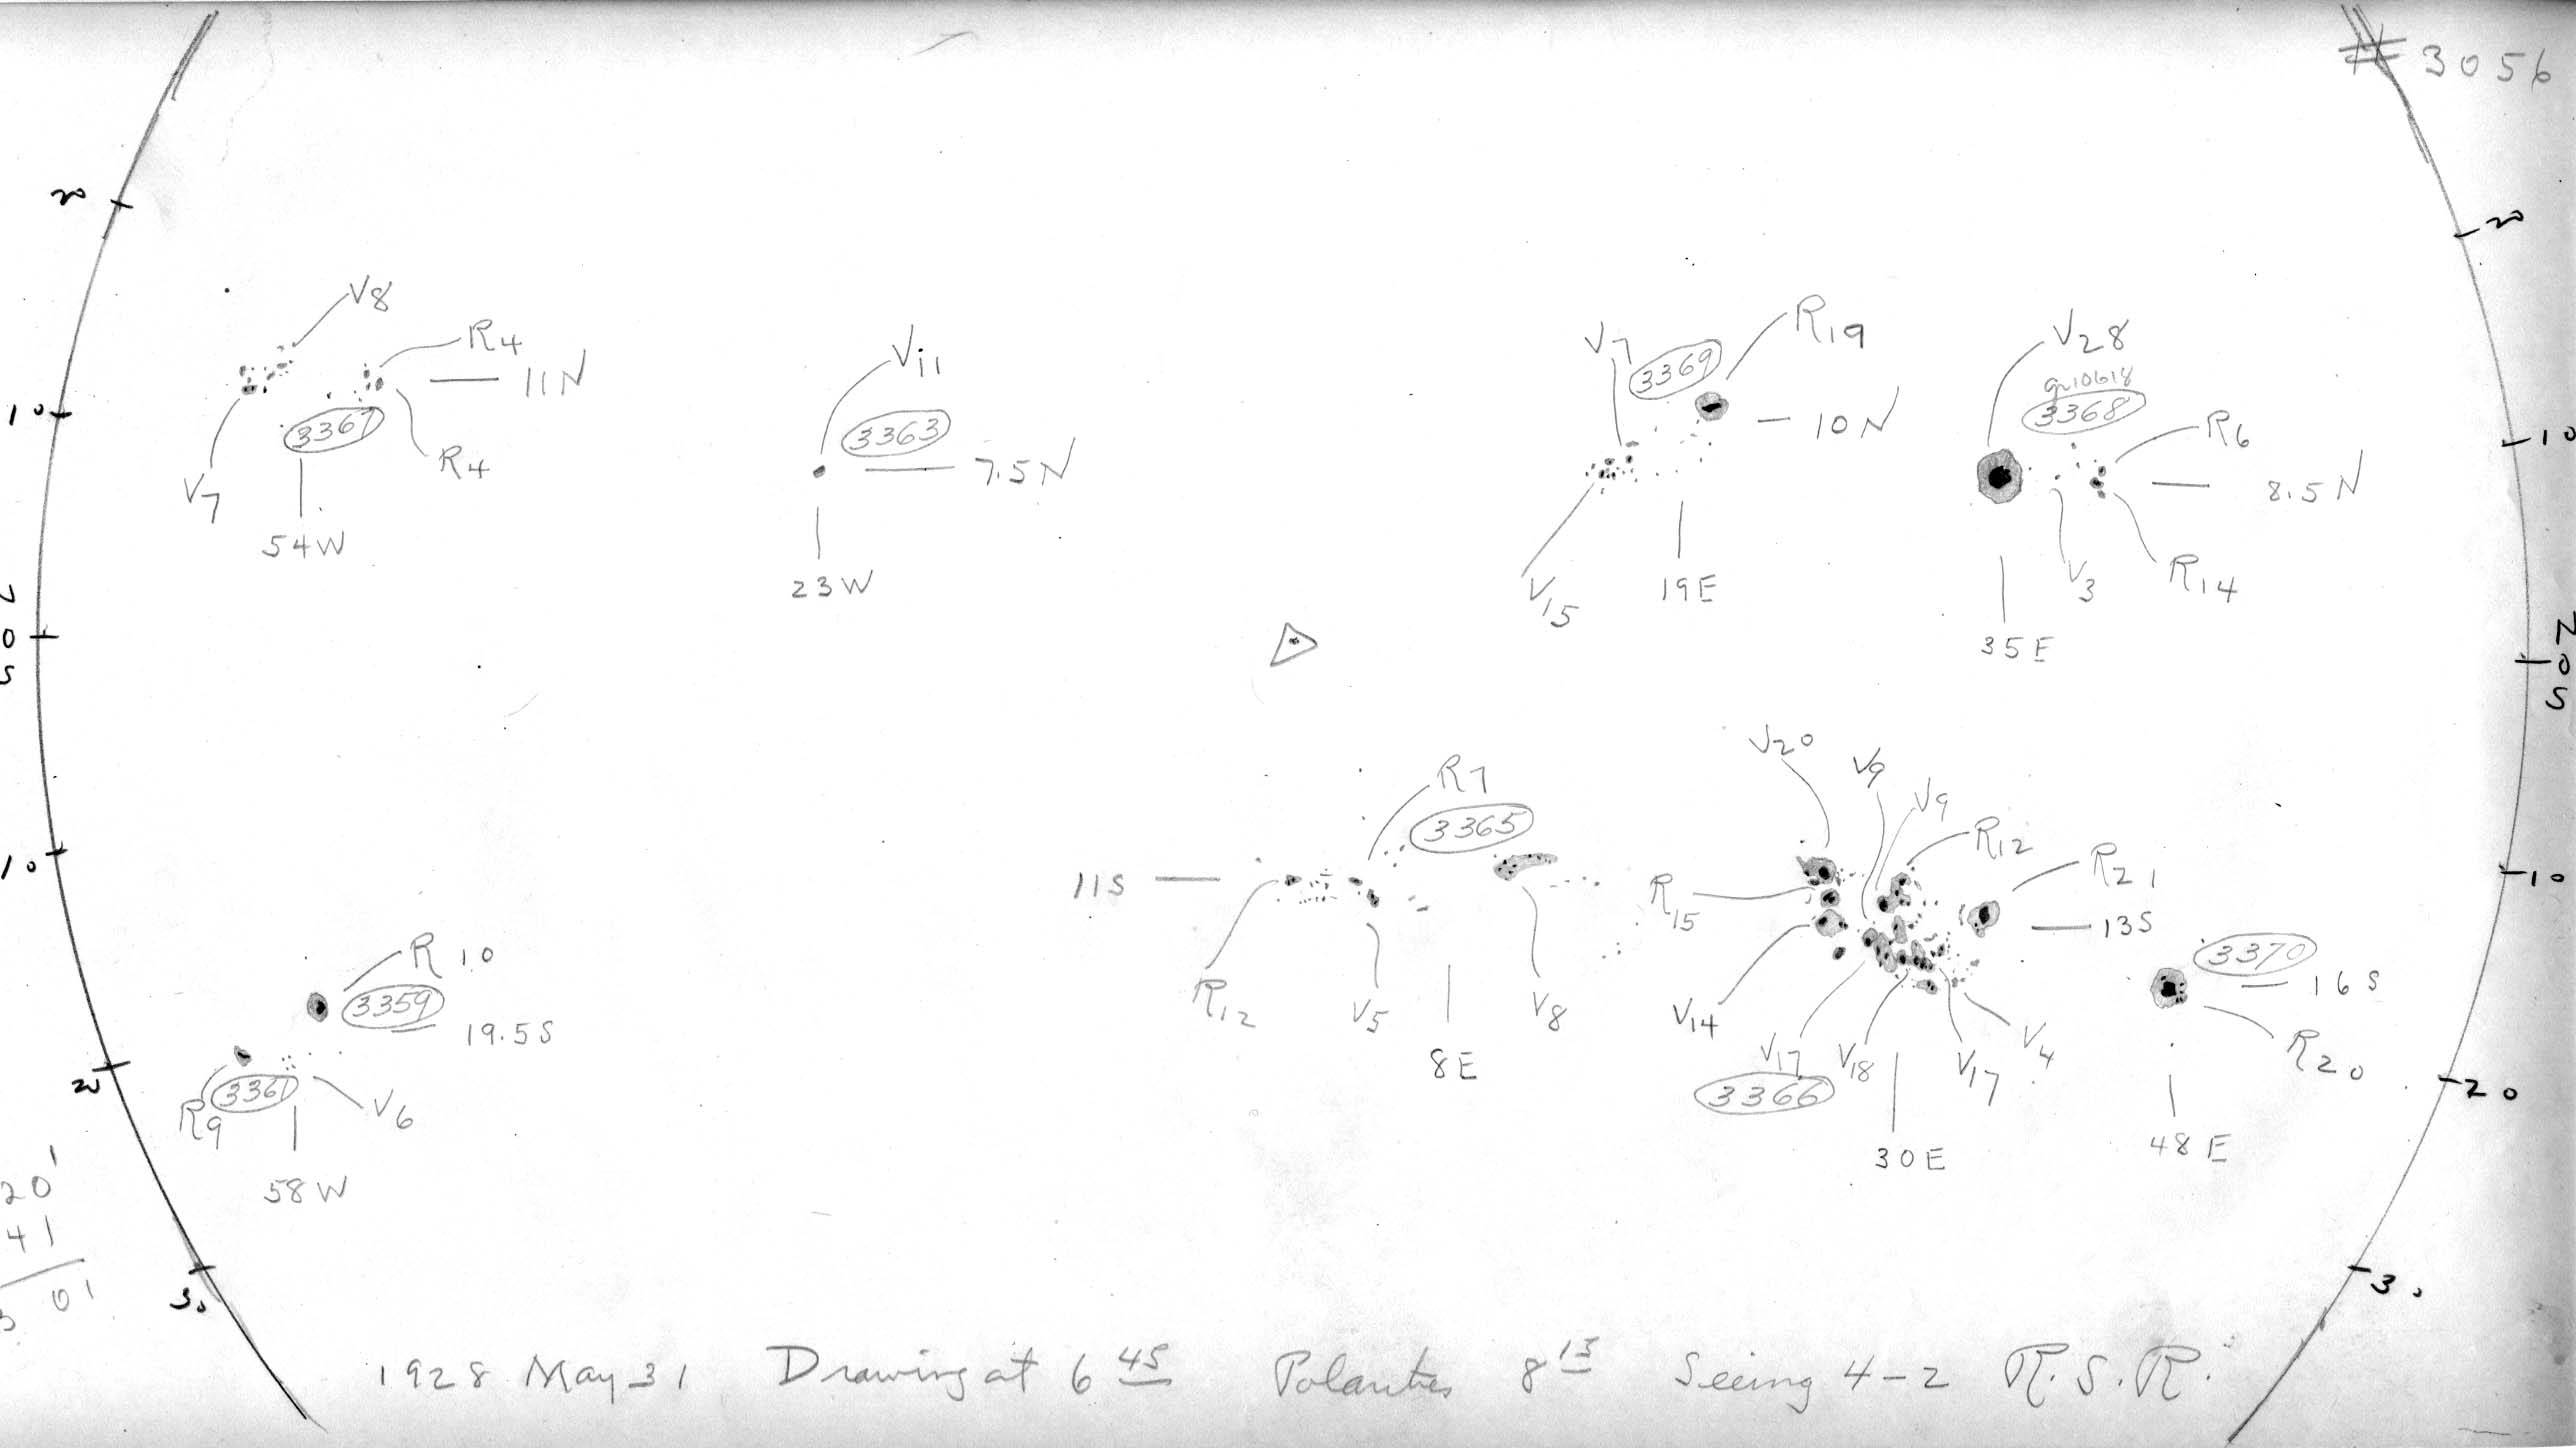 # 3056
20
20
V8
R4
11N
V11
V7
3369
R19
V28
gr10618
3368
10
3367
R4
3363
7.5N
10N
R6
10
V7
54W
23W
V15
19E
8.5N
V3
R14
35E
0
S
N
0
S
R7
V20
V9
V9
3365
R12
R21
10
11S
R15
13S
10
R10
3359
19.5S
3370
16S
R12
V5
V8
V14
V17
V18
V17
V4
R20
20
3361
R9
V6
8E
3366
20
58W
30E
48E
20'
41
01
30
30
1928 May 31 Drawing at 6 45 Polarities 8 13 Seeing 4-2 R.S.R.